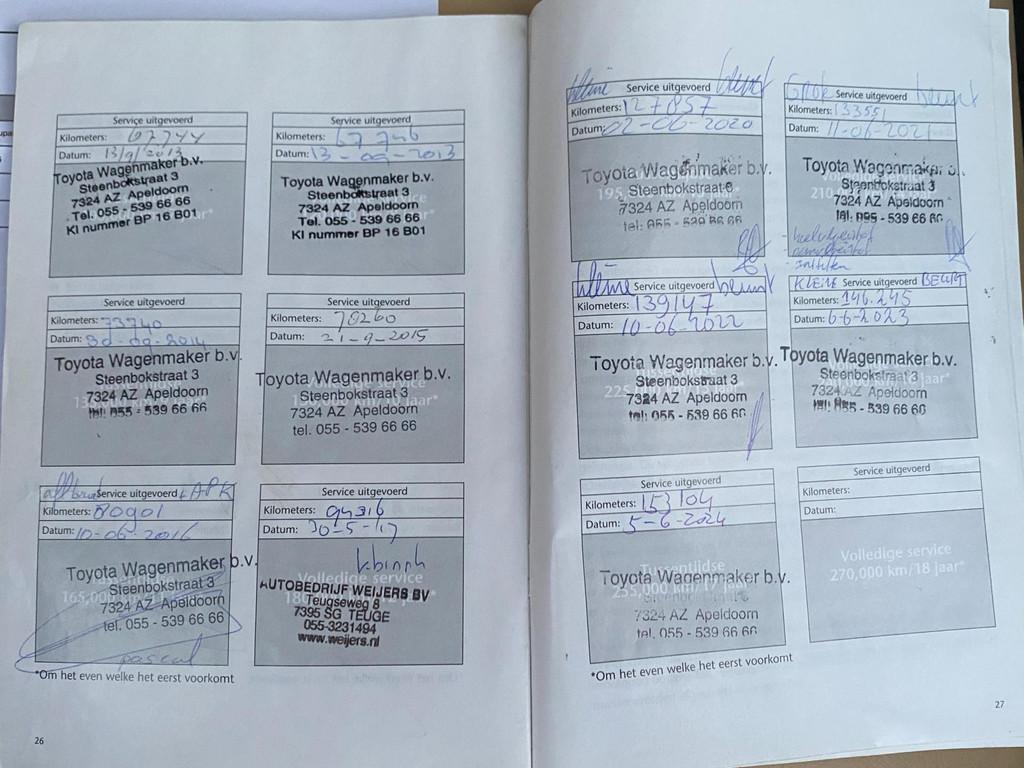 Service uitgevoerd
Kilometers: 67744
Datum: 13/9/2013
Toyota Wagenmaker b.v.
Steenbokstraat 3
7324 AZ Apeldoorn
Tel. 055 - 539 66 66
KI nummer BP 16 B01
Service uitgevoerd
Kilometers: 67746
Datum: 13-09-2013
Toyota Wagenmaker b.v.
Steenbokstraat 3
7324 AZ Apeldoorn
Tel. 055 - 539 66 66
KI nummer BP 16 B01
Service uitgevoerd
Kilometers: 73740
Datum: 30-09-2014
Toyota Wagenmaker b.v.
Steenbokstraat 3
7324 AZ Apeldoorn
tel: 055 - 539 66 66
Service uitgevoerd
Kilometers: 78260
Datum: 21-9-2015
Toyota Wagenmaker b.v.
Steenbokstraat 3
7324 AZ Apeldoorn
tel. 055 - 539 66 66
Service uitgevoerd + APK
Kilometers: 80901
Datum: 10-06-2016
Toyota Wagenmaker b.v.
Steenbokstraat 3
165,000
7324 AZ Apeldoorn
tel. 055 - 539 66 66
pascal
Service uitgevoerd
Kilometers: 94316
Datum: 30-5-17
Volledige service
AUTOBEDRIJF WEIJERS BV
Teugseweg 8
7395 SG TEUGE
055-3231494
www.weijers.nl
*Om het even welke het eerst voorkomt
26
kleine Service uitgevoerd beurt
Kilometers: 127857
Datum: 02-06-2020
Toyota Wagenmaker b.v.
Steenbokstraat 3
7324 AZ Apeldoorn
tel: 055 - 539 66 66
Groot Service uitgevoerd beurt
Kilometers: 133551
Datum: 11-06-2021
Toyota Wagenmaker b.v.
Steenbokstraat 3
7324 AZ Apeldoorn
tel. 055 - 539 66 66
kleine Service uitgevoerd beurt
Kilometers: 139147
Datum: 10-06-2022
Toyota Wagenmaker b.v.
Steenbokstraat 3
7324 AZ Apeldoorn
tel: 055 - 539 66 66
KLEINE Service uitgevoerd BEURT
Kilometers: 146.245
Datum: 6-6-2023
Toyota Wagenmaker b.v.
Steenbokstraat 3
7324 AZ Apeldoorn
- 539 66 66
Service uitgevoerd
Kilometers: 153104
Datum: 5-6-2024
Tussentijdse
Toyota Wagenmaker b.v.
235,000 km/17 jaar*
7324 AZ Apeldoorn
tel. 055 - 539 66 66
Service uitgevoerd
Kilometers:
Datum:
Volledige service
270,000 km/18 jaar*
*Om het even welke het eerst voorkomt
27